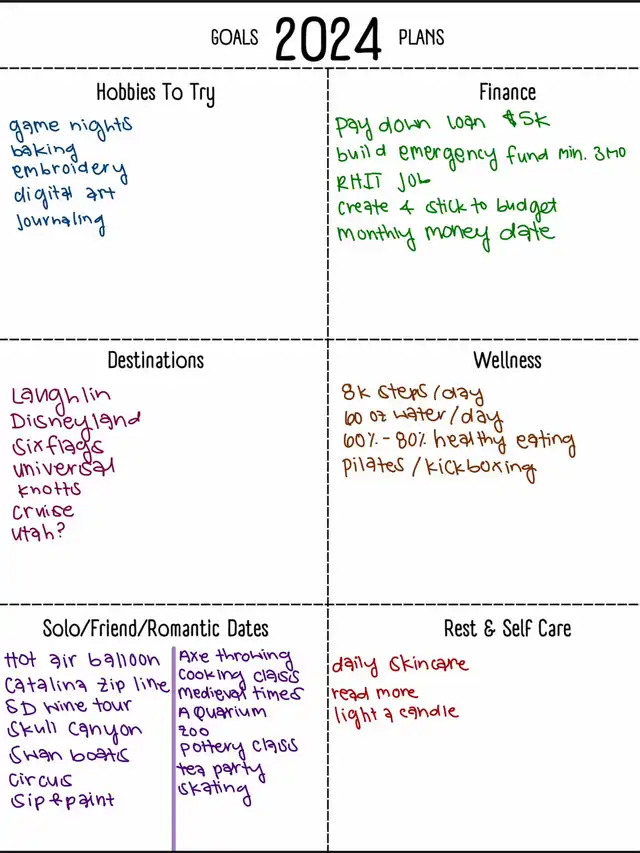 GOALS 2024 PLANS
Hobbies To Try
game nights
baking
embroidery
digital art
journaling
Finance
Pay down loan $5K
build emergency fund min. 3 MO
RHIT JOB
Create & stick to budget
monthly money date
Destinations
Laughlin
Disneyland
Sixflags
universal
knotts
cruise
utah?
Wellness
8k steps/day
60 oz water/day
60%-80% healthy eating
pilates/kickboxing
Solo/Friend/Romantic Dates
Hot air balloon
Catalina zip line
SD wine tour
Skull Canyon
Swan boats
Circus
Sip & paint
Axe throwing
cooking class
medieval times
AQuarium
zoo
pottery class
tea party
skating
Rest & Self Care
daily skincare
read more
light a candle